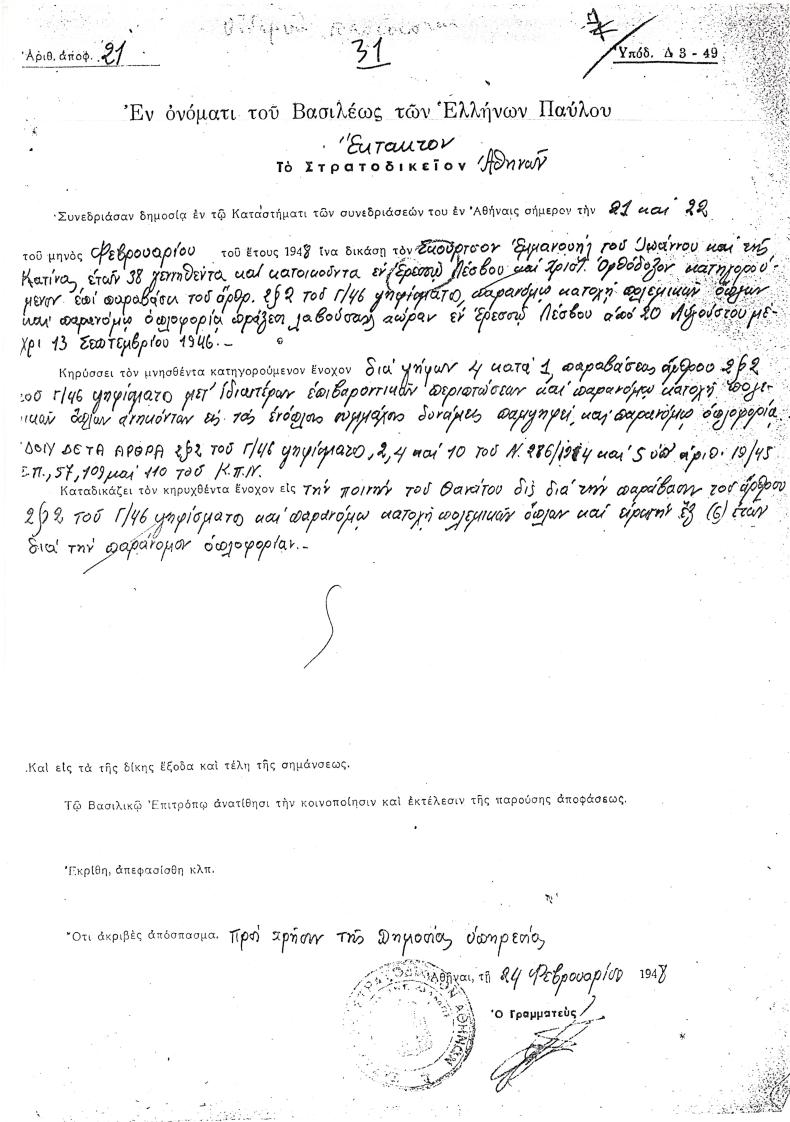 Ἀριθ. ἀποφ. 21
31
Ὑπόδ. Δ 3 - 49
Ἐν ὀνόματι τοῦ Βασιλέως τῶν Ἑλλήνων Παύλου
Ἔκτακτον
Τὸ Στρατοδικεῖον Ἀθηνῶν
Συνεδριάσαν δημοσίᾳ ἐν τῷ Καταστήματι τῶν συνεδριάσεών του ἐν Ἀθήναις σήμερον τὴν 21 καὶ 22
τοῦ μηνὸς Φεβρουαρίου τοῦ ἔτους 1948 ἵνα δικάσῃ τὸν Σκούρτσον Ἐμμανουὴλ τοῦ Ἰωάννου καὶ τῆς
Κατίνας, ἐτῶν 38 γεννηθέντα καὶ κατοικοῦντα ἐν Ἐρεσσῷ Λέσβου καὶ Χριστ. Ὀρθόδοξον κατηγορού-
μενον ἐπὶ παραβάσει τοῦ ἄρθρ. 2§2 τοῦ Γ/46 ψηφίσματος, παρανόμῳ κατοχῇ πολεμικῶν ὅπλων
καὶ παρανόμῳ ὁπλοφορίᾳ πράξεσι λαβούσαις χώραν ἐν Ἐρεσσῷ Λέσβου ἀπὸ 20 Αὐγούστου μέ-
χρι 13 Σεπτεμβρίου 1946.-
Κηρύσσει τὸν μνησθέντα κατηγορούμενον ἔνοχον διὰ ψήφων 4 κατὰ 1, παραβάσεως ἄρθρου 2§2
τοῦ Γ/46 ψηφίσματος μετ' ἰδιαιτέρων ἐπιβαρυντικῶν περιστάσεων καὶ παρανόμῳ κατοχῇ πολε-
μικῶν ὅπλων ἀνηκόντων εἰς τὰς ἐνόπλους συμμάχους δυνάμεις παμψηφεὶ καὶ παρανόμῳ ὁπλοφορίᾳ
ἸΔΟΝ ΔΕ ΤΑ ΑΡΘΡΑ 2§2 τοῦ Γ/46 ψηφίσματος, 2, 4 καὶ 10 τοῦ Ν. 286/1914 καὶ 5 ὑπ' ἀριθ. 19/45
Σ.Π., 57, 109 καὶ 110 τοῦ Κ.Π.Ν.
Καταδικάζει τὸν κηρυχθέντα ἔνοχον εἰς τὴν ποινὴν τοῦ θανάτου δὶς διὰ τὴν παράβασιν τοῦ ἄρθρου
2§2 τοῦ Γ/46 ψηφίσματος καὶ παρανόμῳ κατοχῇ πολεμικῶν ὅπλων καὶ εἱρκτὴν ἓξ (6) ἐτῶν
διὰ τὴν παράνομον ὁπλοφορίαν.-
Καὶ εἰς τὰ τῆς δίκης ἔξοδα καὶ τέλη τῆς σημάνσεως.
Τῷ Βασιλικῷ Ἐπιτρόπῳ ἀνατίθησι τὴν κοινοποίησιν καὶ ἐκτέλεσιν τῆς παρούσης ἀποφάσεως.
Ἐκρίθη, ἀπεφασίσθη κλπ.
Ὅτι ἀκριβὲς ἀπόσπασμα. Πρὸς χρῆσιν τῆς Δημοσίας ὑπηρεσίας
Ἀθῆναι, τῇ 24 Φεβρουαρίου 1948
Ὁ Γραμματεὺς